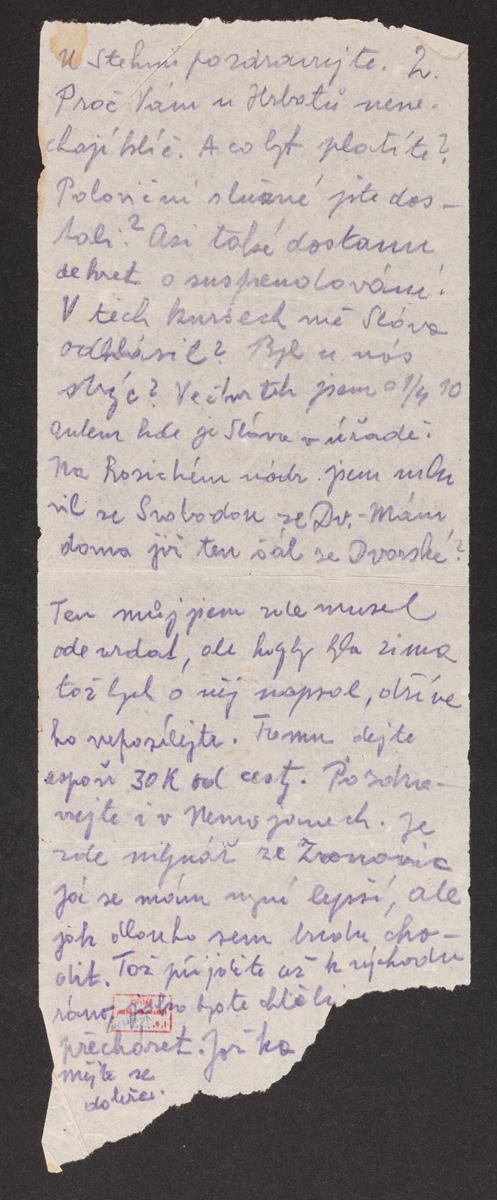 U Stehnů pozdravujte. 2.
Proč Vám u Hrbatů nene-
chají klíč. A co byt platíte?
Poloviční služné jste dos-
tali? Asi také dostanu
dekret o suspendování!
V těch kursech mě Sláva
odhlásil? Byl u nás
strýc? Ve čtvrtek jsem o 1/4 10
autem kde je Sláva v úřadě.
Na Rosickém nádr. jsem mlu
vil se Svobodou ze Dv.- Mám
doma již ten šál ze Dvorské?
Ten můj jsem zde musel
odevzdat, ale kdyby byla zima
tož bych o něj napsal, dříve
ho neposílejte. Tomu dejte
aspoň 30K od cesty. Pozdra-
vujte i v Nemojanech. Je
zde mlynář ze Zvonovic
Já se mám nyní lepší, ale
jak dlouho sem budu cho-
dit. Tož přijdite až k východu
ráno, jako byste chtěli
přecházet. Joška
Mějte se
dobře.